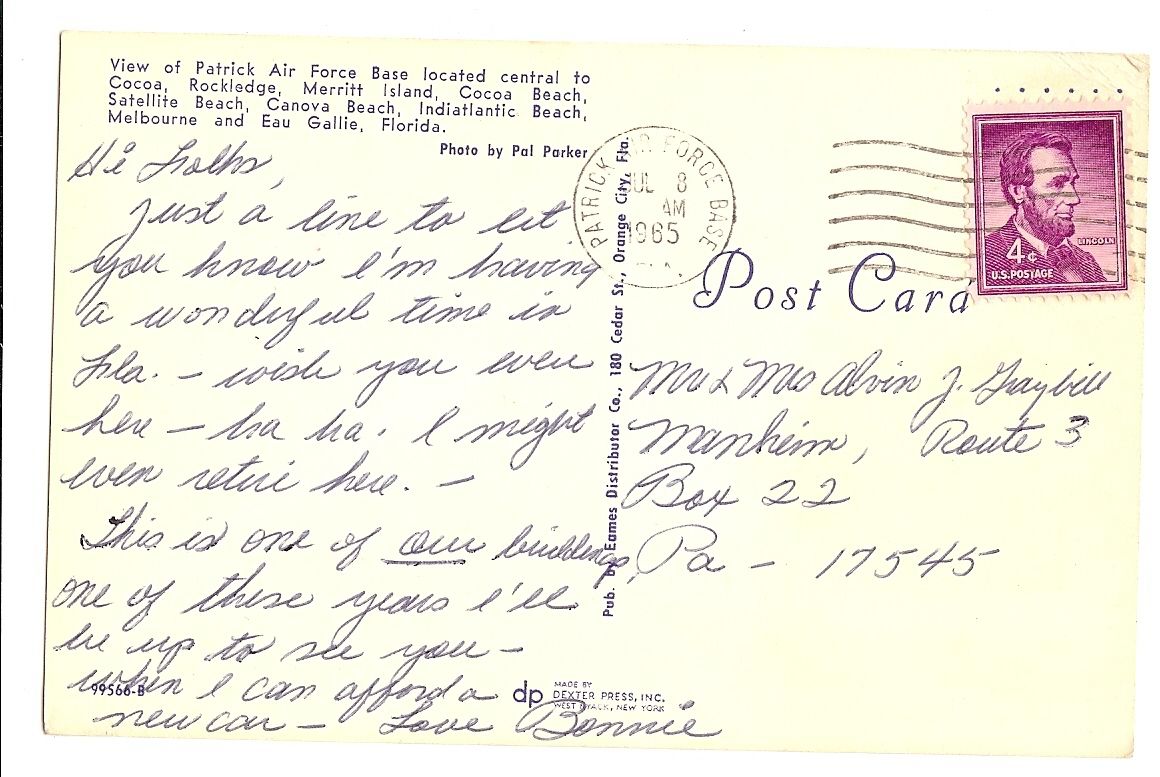 View of Patrick Air Force Base located central to
Cocoa, Rockledge, Merritt Island, Cocoa Beach,
Satellite Beach, Canova Beach, Indiatlantic Beach,
Melbourne and Eau Gallie, Florida.
Photo by Pal Parker
Hi Folks,
Just a line to let
you know I'm having
a wonderful time in
Fla. - wish you even
here - ha ha. I might
even retire here. -
This is one of our buildings,
one of these years I'll
be up to see you -
when I can afford a
new car - Love Bonnie
99566-B
dp
MADE BY
DEXTER PRESS, INC.
WEST NYACK, NEW YORK
Pub. by Eames Distributor Co., 180 Cedar St., Orange City, Fla.
PATRICK AIR FORCE BASE
JUL 8
AM
1965
FLA.
LINCOLN
4¢
U.S. POSTAGE
Post Card
Mr & Mrs Alvin J. Graybill
Manheim, Route 3
Box 22
Pa - 17545